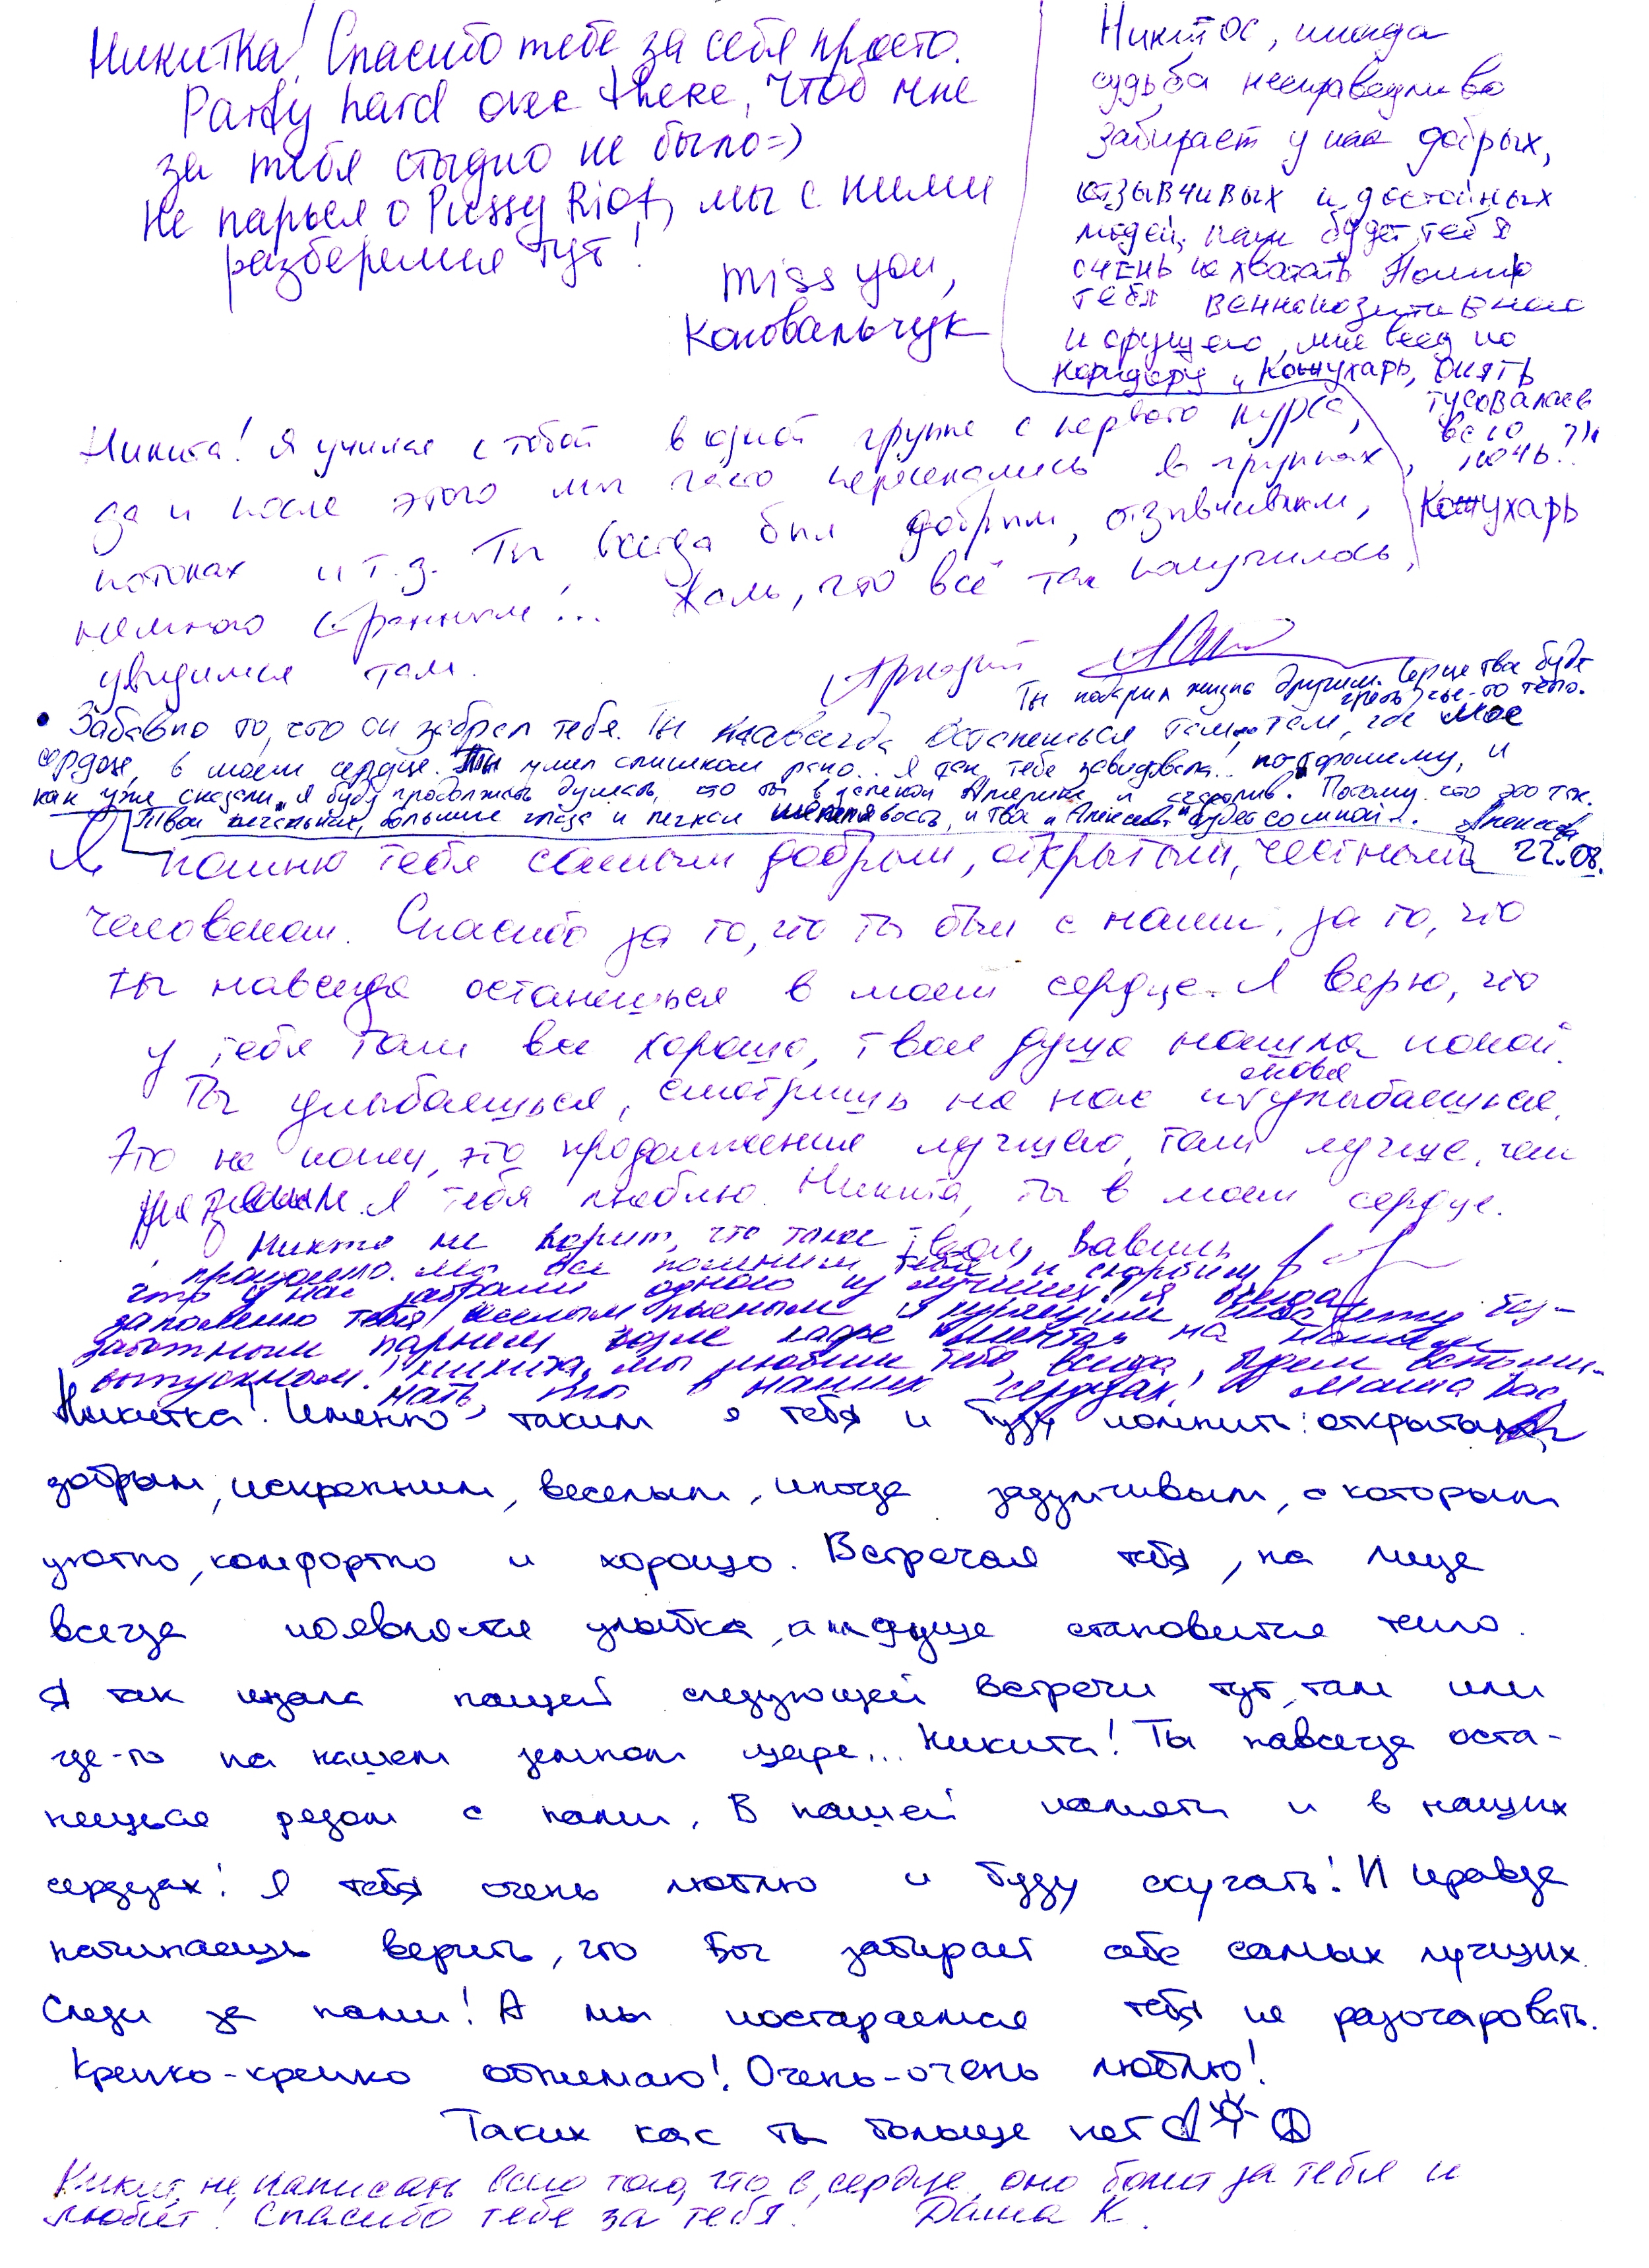 Никитка! Спасибо тебе за себя просто.
Party hard over there, чтоб мне
за тебя стыдно не было=)
Не парься о Pussy Riot, мы с ними
разберемся тут!
miss you,
Коновальчук
Никитос, иногда
судьба несправедливо
забирает у нас добрых,
отзывчивых и достойных
людей, нам будет тебя
очень не хватать Помню
тебя
и орущего, мне
коридору "Кожухарь, опять
тусовалась
всю
ночь?!"
Кожухарь
Никита! Я учился с тобой в одной группе с первого курса,
да и после этого мы часто пересекались в группах,
потоках и т.д. Ты всегда был добрым, отзывчивым,
немного странным!... Жаль, что всё так получилось,
увидимся там.
Аркадий
Ты подарил жизнь другим. Сердце твое будет
греть чье-то тело.
• Забавно то, что он забрал тебя. Ты навсегда останешься там, там, где мое
сердце, в моем сердце. Ты ушел слишком рано.. Я так тебе завидовала! по-хорошему, и
как уже сказали, я буду продолжать думать, что ты в далекой Америке и счастлив. Потому что это так.
Твои печальные, большие глаза и легкая шепелявость, и твоя "Алексеева" будет со мной. Алексеева
22.08.
Я помню тебя самым добрым, открытым, честным
человеком. Спасибо за то, что ты был с нами, за то, что
ты навсегда останешься в моем сердце. Я верю, что
у тебя там все хорошо, твоя душа нашла покой.
Ты улыбаешься, смотришь на нас и снова улыбаешься.
Это не конец, это продолжение лучшего, там лучше, чем
Я тебя люблю Никита, ты в моем сердце.
Никто не верит, что такое
произошло. Мы все помним тебя и скорбим
что у нас забрали одного из лучших! Я всегда
запомню тебя веселым пьяным и курящим
заботным парнем возле кафе на нашем
выпускном! Никита, мы любим тебя, всегда, будем вспоми-
нать, ты в наших сердцах! Маша
Никитка! Именно таким я тебя и буду помнить: открытым
добрым, искренним, веселым, иногда задумчивым, с которым
уютно, комфортно и хорошо. Встречая тебя, на лице
всегда появляется улыбка, а на душе становится тепло.
Я так ждала нашей следующей встречи тут, там или
где-то на нашем земном шаре... Никита! Ты навсегда оста-
нешься рядом с нами. В нашей памяти и в наших
сердцах! Я тебя очень люблю и буду скучать! И правда
начинаешь верить, что Бог забирает себе самых лучших.
Следи за нами! А мы постараемся тебя не разочаровать.
Крепко-крепко обнимаю! Очень-очень люблю!
Таких как ты больше нет
Никит, не написать всего того, что в сердце, оно болит за тебя и
любит! Спасибо тебе за тебя! Даша К.